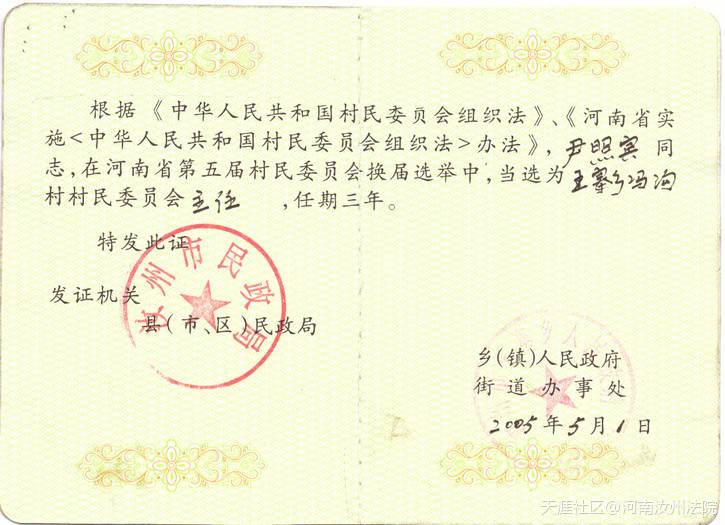 根据《中华人民共和国村民委员会组织法》、《河南省实
施<中华人民共和国村民委员会组织法>办法》，尹照宾 同
志，在河南省第五届村民委员会换届选举中，当选为王寨乡冯沟
村村民委员会 主任 ，任期三年。
特发此证
发证机关
汝州市民政局
县（市、区）民政局
乡（镇）人民政府
街道办事处
2005年5月1日
天涯社区@河南汝州法院